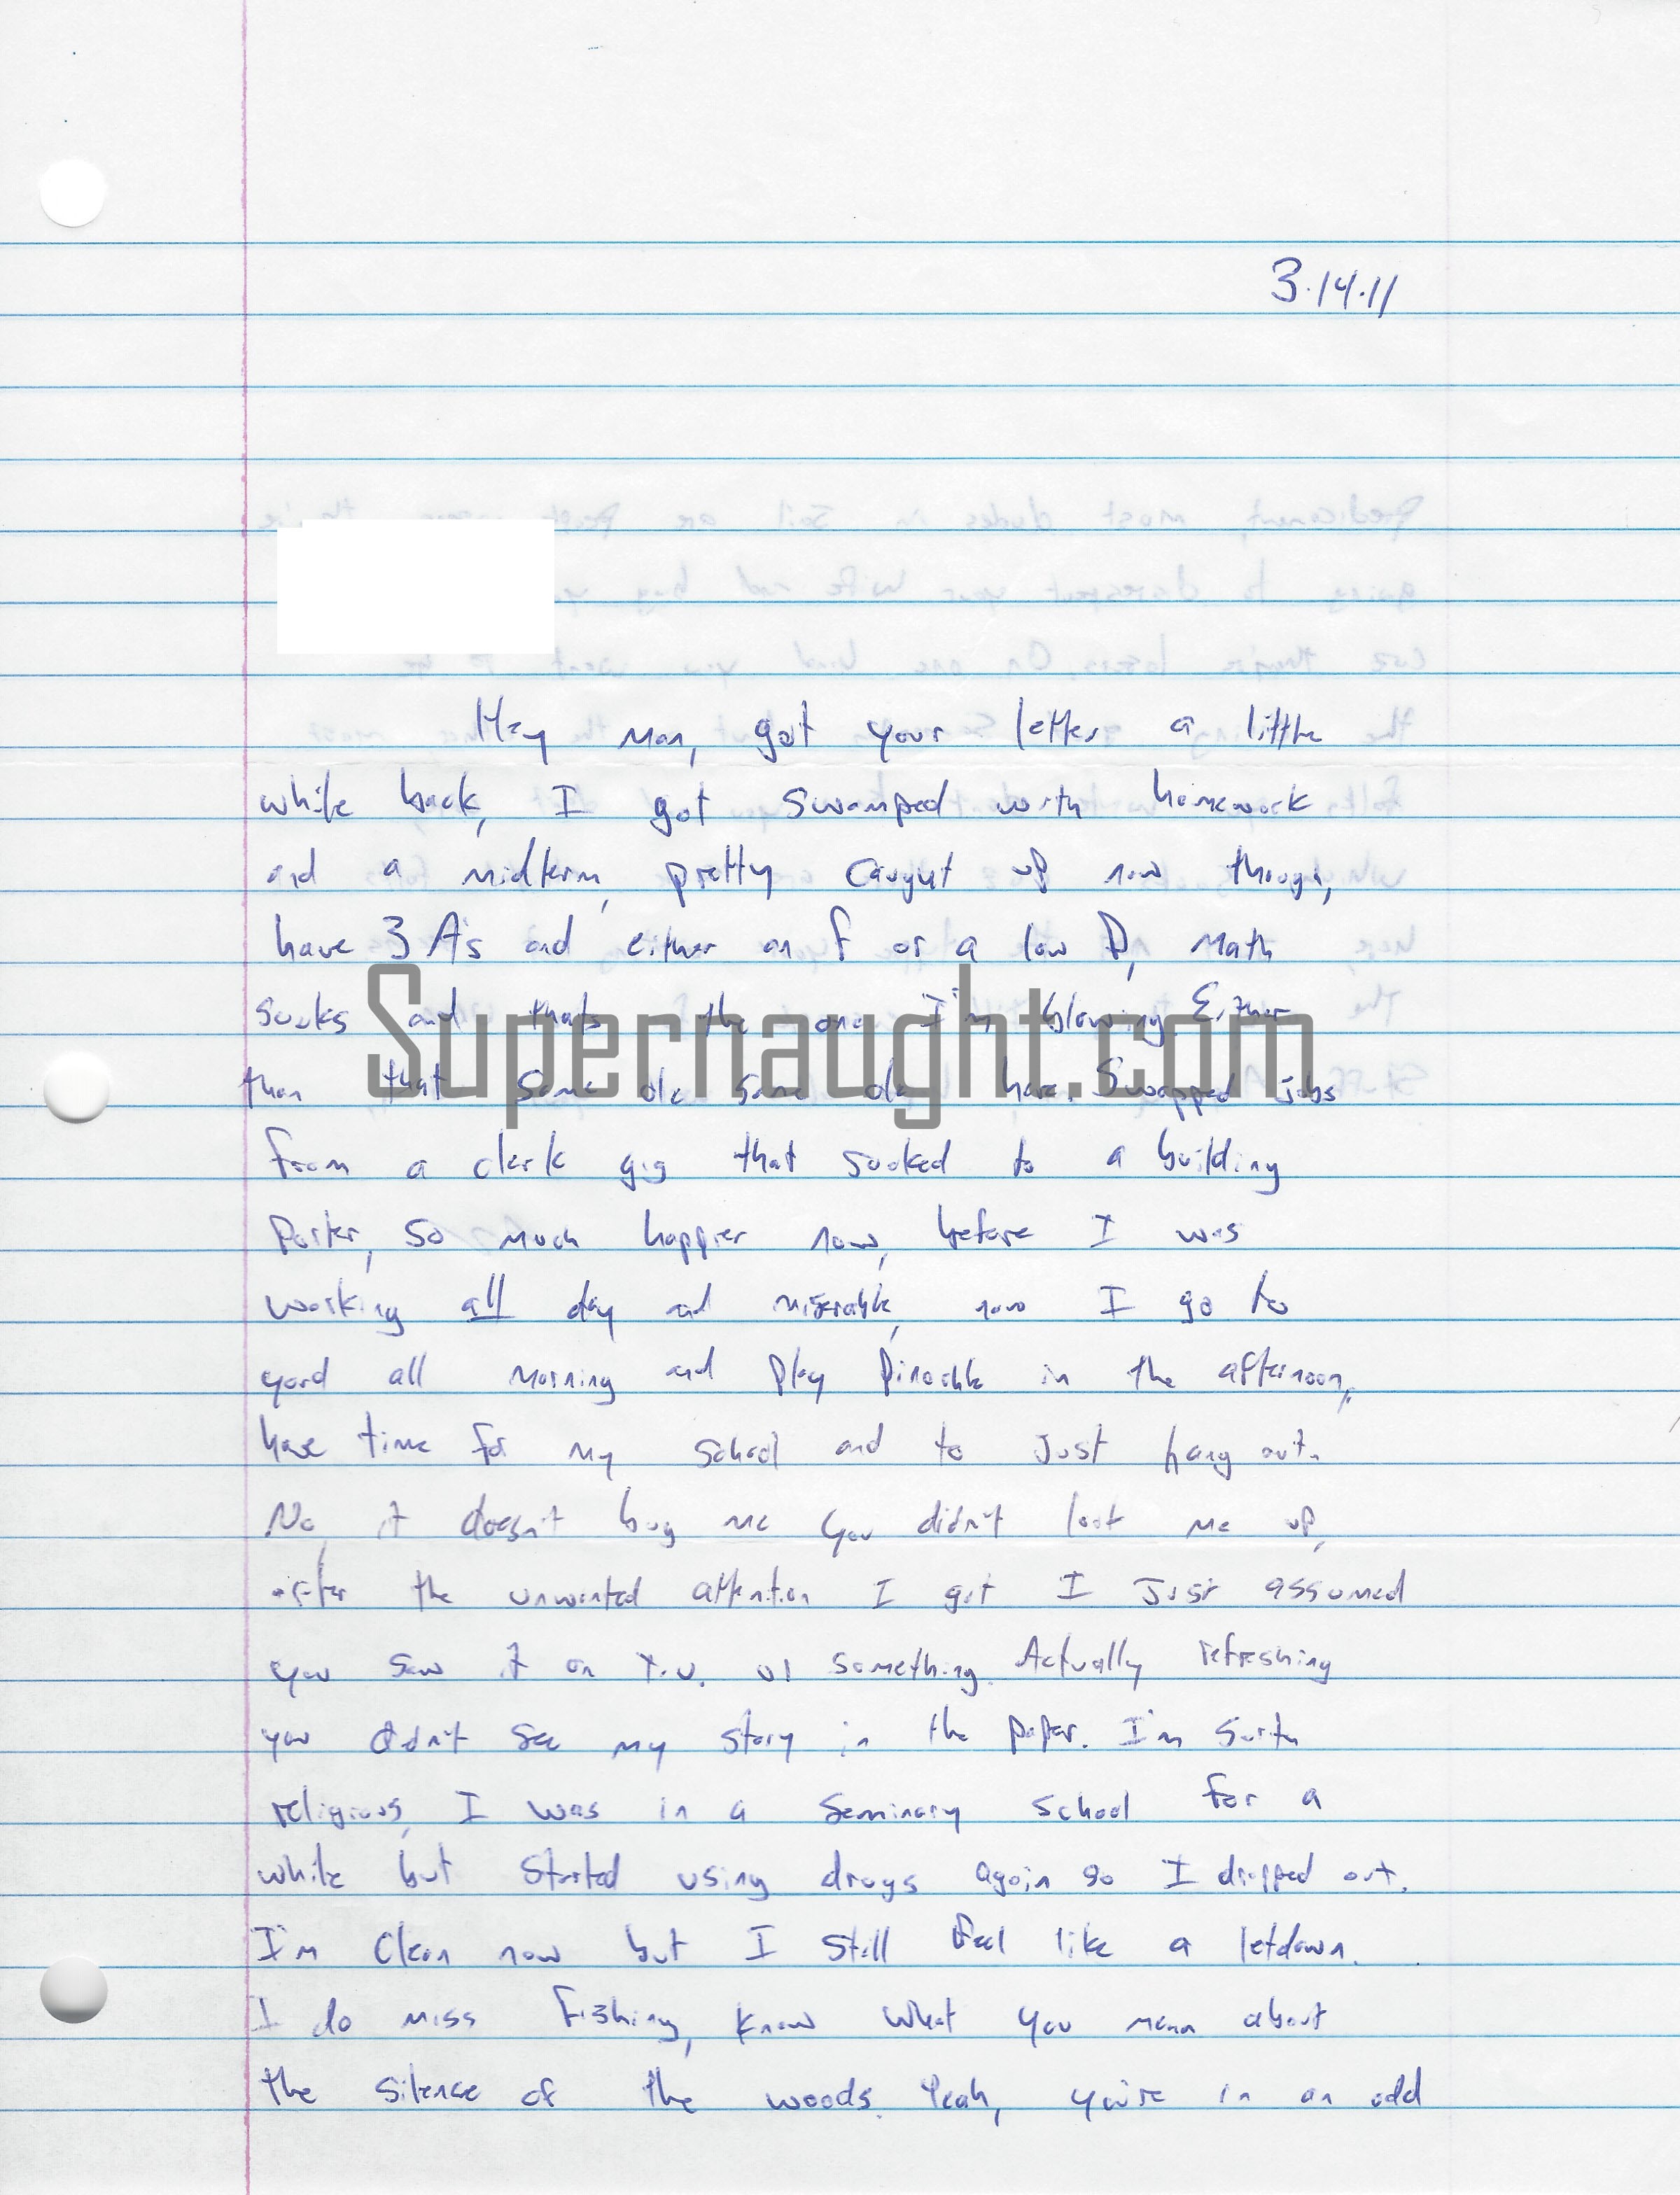 3.14.11
Hey man, got your letter a little
while back, I got swamped with homework
and a midterm, pretty caught up now though,
have 3 A's and either an F or a low D, Math
sucks and thats the one I'm blowing. Either
than that same ole same ole here. Swapped jobs
from a clerk gig that sucked to a building
Porter, so much happier now, before I was
working all day and miserable, now I go to
yard all morning and play Pinochle in the afternoon,
have time for my school and to just hang out.
No, it doesn't bug me you didn't look me up,
after the unwanted attention I got I just assumed
you saw it on T.V. or something. Actually refreshing
you didn't see my story in the paper. I'm sorta
religious, I was in a seminary school for a
while but started using drugs again so I dropped out.
I'm clean now but I still feel like a letdown.
I do miss fishing, know what you mean about
the silence of the woods. Yeah, you're in an odd
Supernaught.com